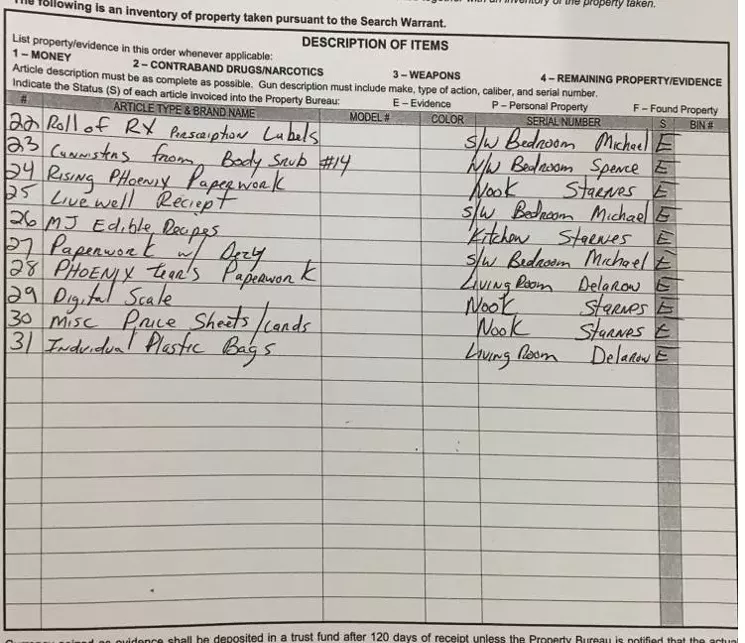 The following is an inventory of property taken pursuant to the Search Warrant.
inventory of the property taken.
DESCRIPTION OF ITEMS
List property/evidence in this order whenever applicable:
1 – MONEY 2 – CONTRABAND DRUGS/NARCOTICS 3 – WEAPONS 4 – REMAINING PROPERTY/EVIDENCE
Article description must be as complete as possible. Gun description must include make, type of action, caliber, and serial number.
Indicate the Status (S) of each article invoiced into the Property Bureau: E – Evidence P – Personal Property F – Found Property
# ARTICLE TYPE & BRAND NAME MODEL # COLOR SERIAL NUMBER S BIN #
22 Roll of RX Prescription Labels S/W Bedroom Michael E
23 Cannisters from Body Snub #14 N/W Bedroom Spence E
24 Rising PHoenix Paperwork Nook Starnes E
25 Livewell Reciept S/W Bedroom Michael E
26 MJ Edible Recipes Kitchen Starnes E
27 Paperwork w/ S/W Bedroom Michael E
28 PHOENIX Tear's Paperwork Living Room Delarow E
29 Digital Scale Nook Starnes E
30 Misc Price Sheets/Cards Nook Starnes E
31 Individual Plastic Bags Living Room Delarow E
evidence shall be deposited in a trust fund after 120 days of receipt unless the Property Bureau is notified that the actual